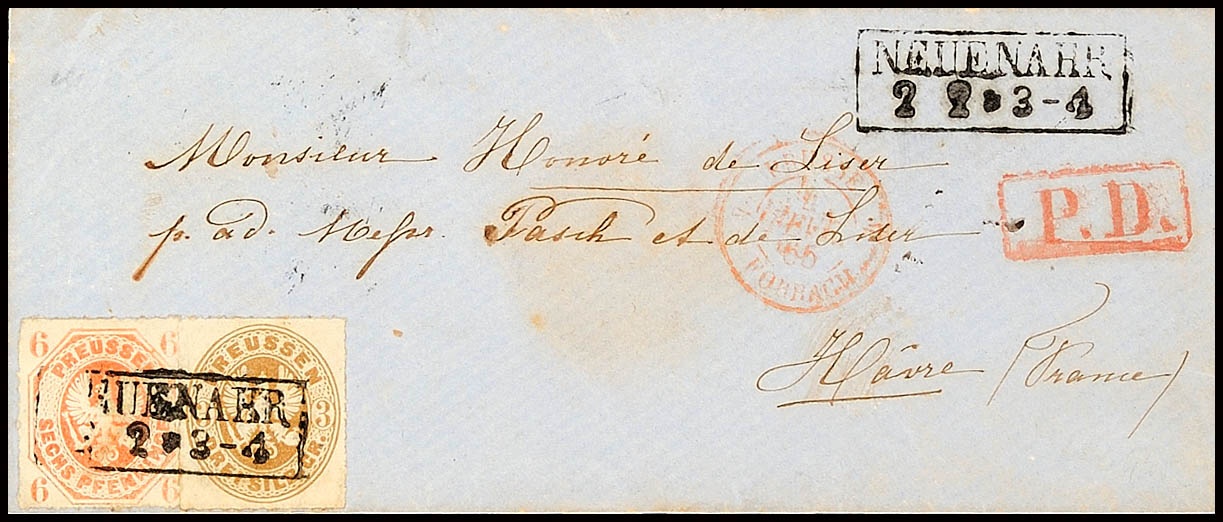 NEUENAHR
2 2 * 3-4
Monsieur Honoré de Liser
p. ad. Messrs. Pasch et de Liser
P.D.
FORBACH
Hâvre (France)
6 6
PREUSSEN
SECHS PFENNIG
6 6
PREUSSEN
3
NEUENAHR
2 * 3-4